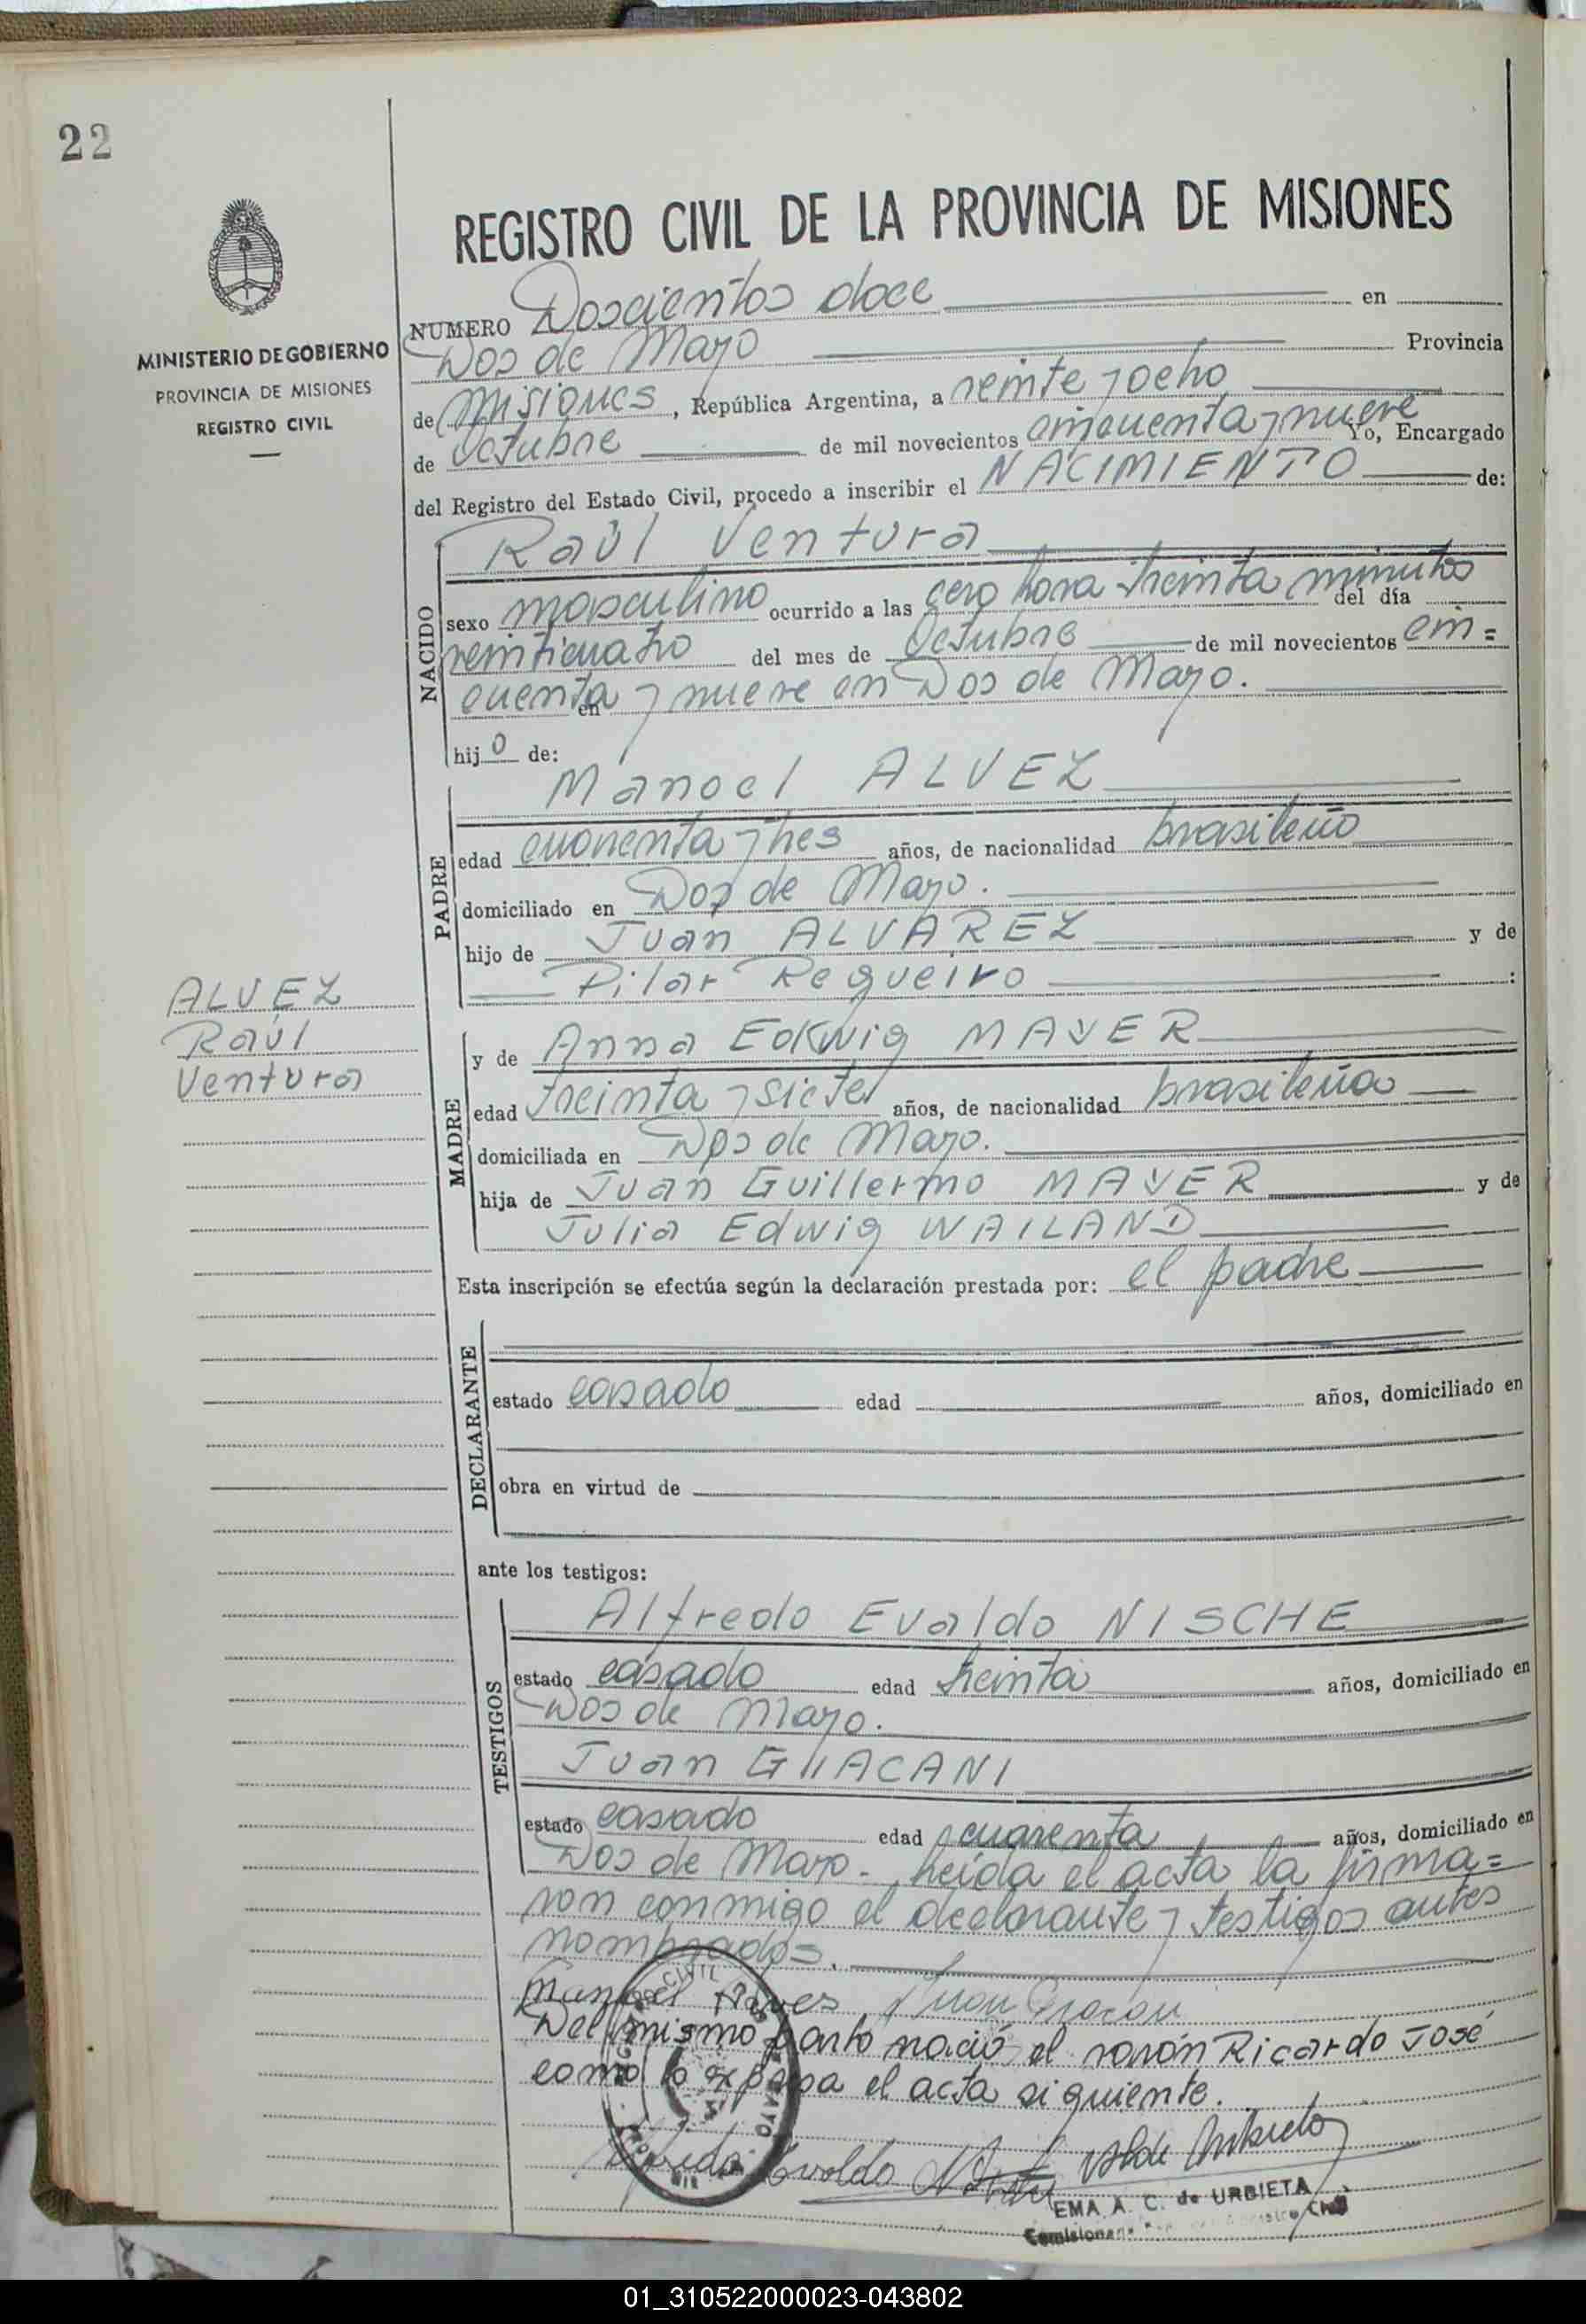 22
MINISTERIO DE GOBIERNO
PROVINCIA DE MISIONES
REGISTRO CIVIL
REGISTRO CIVIL DE LA PROVINCIA DE MISIONES
NUMERO Doscientos doce en
Dos de Mayo Provincia
de Misiones, República Argentina, a veinte y ocho
de Octubre de mil novecientos cincuenta y nueve Yo, Encargado
del Registro del Estado Civil, procedo a inscribir el NACIMIENTO de:
NACIDO
Raúl Ventura
sexo masculino ocurrido a las cero hora treinta minutos del día
veinticuatro del mes de Octubre de mil novecientos cin=
cuenta y nueve en Dos de Mayo.
en
hijo de:
PADRE
Manoel ALVEZ
edad cuarenta y tres años, de nacionalidad brasileño
domiciliado en Dos de Mayo.
hijo de Juan ALVAREZ y de
Pilar Regueiro :
ALVEZ
Raúl
Ventura
MADRE
y de Anna Edwig MAYER
edad treinta y siete años, de nacionalidad brasileña
domiciliada en Dos de Mayo.
hija de Juan Guillermo MAYER y de
Julia Edwig WAILAND
Esta inscripción se efectúa según la declaración prestada por: el padre
DECLARANTE
estado casado edad años, domiciliado en
obra en virtud de
ante los testigos:
TESTIGOS
Alfredo Evaldo NISCHE
estado casado edad treinta años, domiciliado en
Dos de Mayo.
Juan GUACANI
estado casado edad cuarenta años, domiciliado en
Dos de Mayo. Leída el acta la firma=
ron conmigo el declarante y testigos antes
nombrados.
Manoel Alves Juan
Del mismo parto nació el varón Ricardo José
como lo expresa el acta siguiente.
Alfredo Evaldo
EMA A. C. de URBIETA
01_310522000023-043802